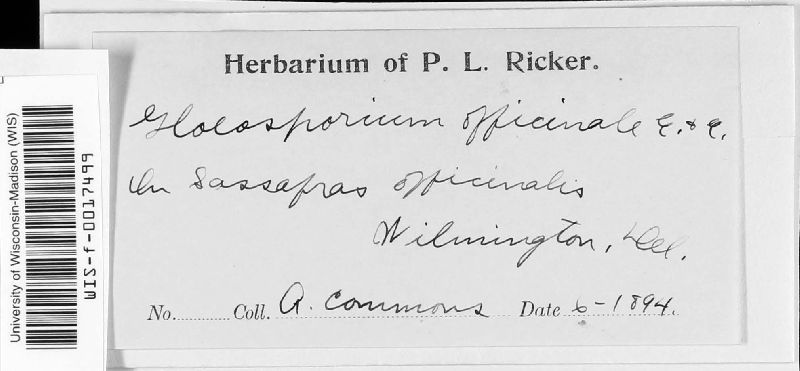 Herbarium of P. L. Ricker.
Gloeosporium officinale E. & E.
On Sassafras officinalis
Wilmington, Del.
No. Coll. A. Commons Date 6-1894.
University of Wisconsin-Madison (WIS)
WIS-f-0017499